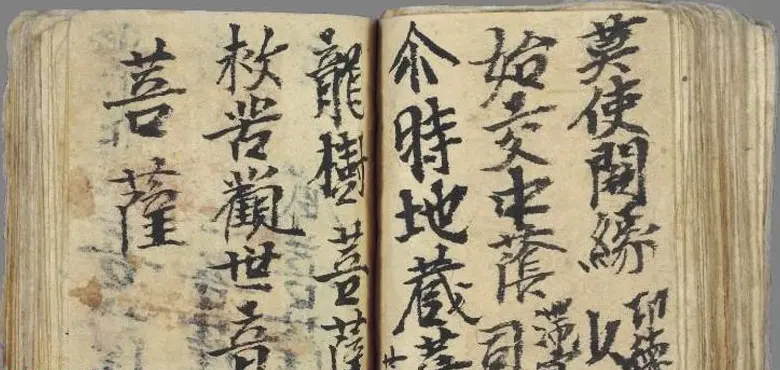 莫使閑緣
始交中蔭
尒時地蔵菩
龍樹菩薩
救苦觀世音
菩薩